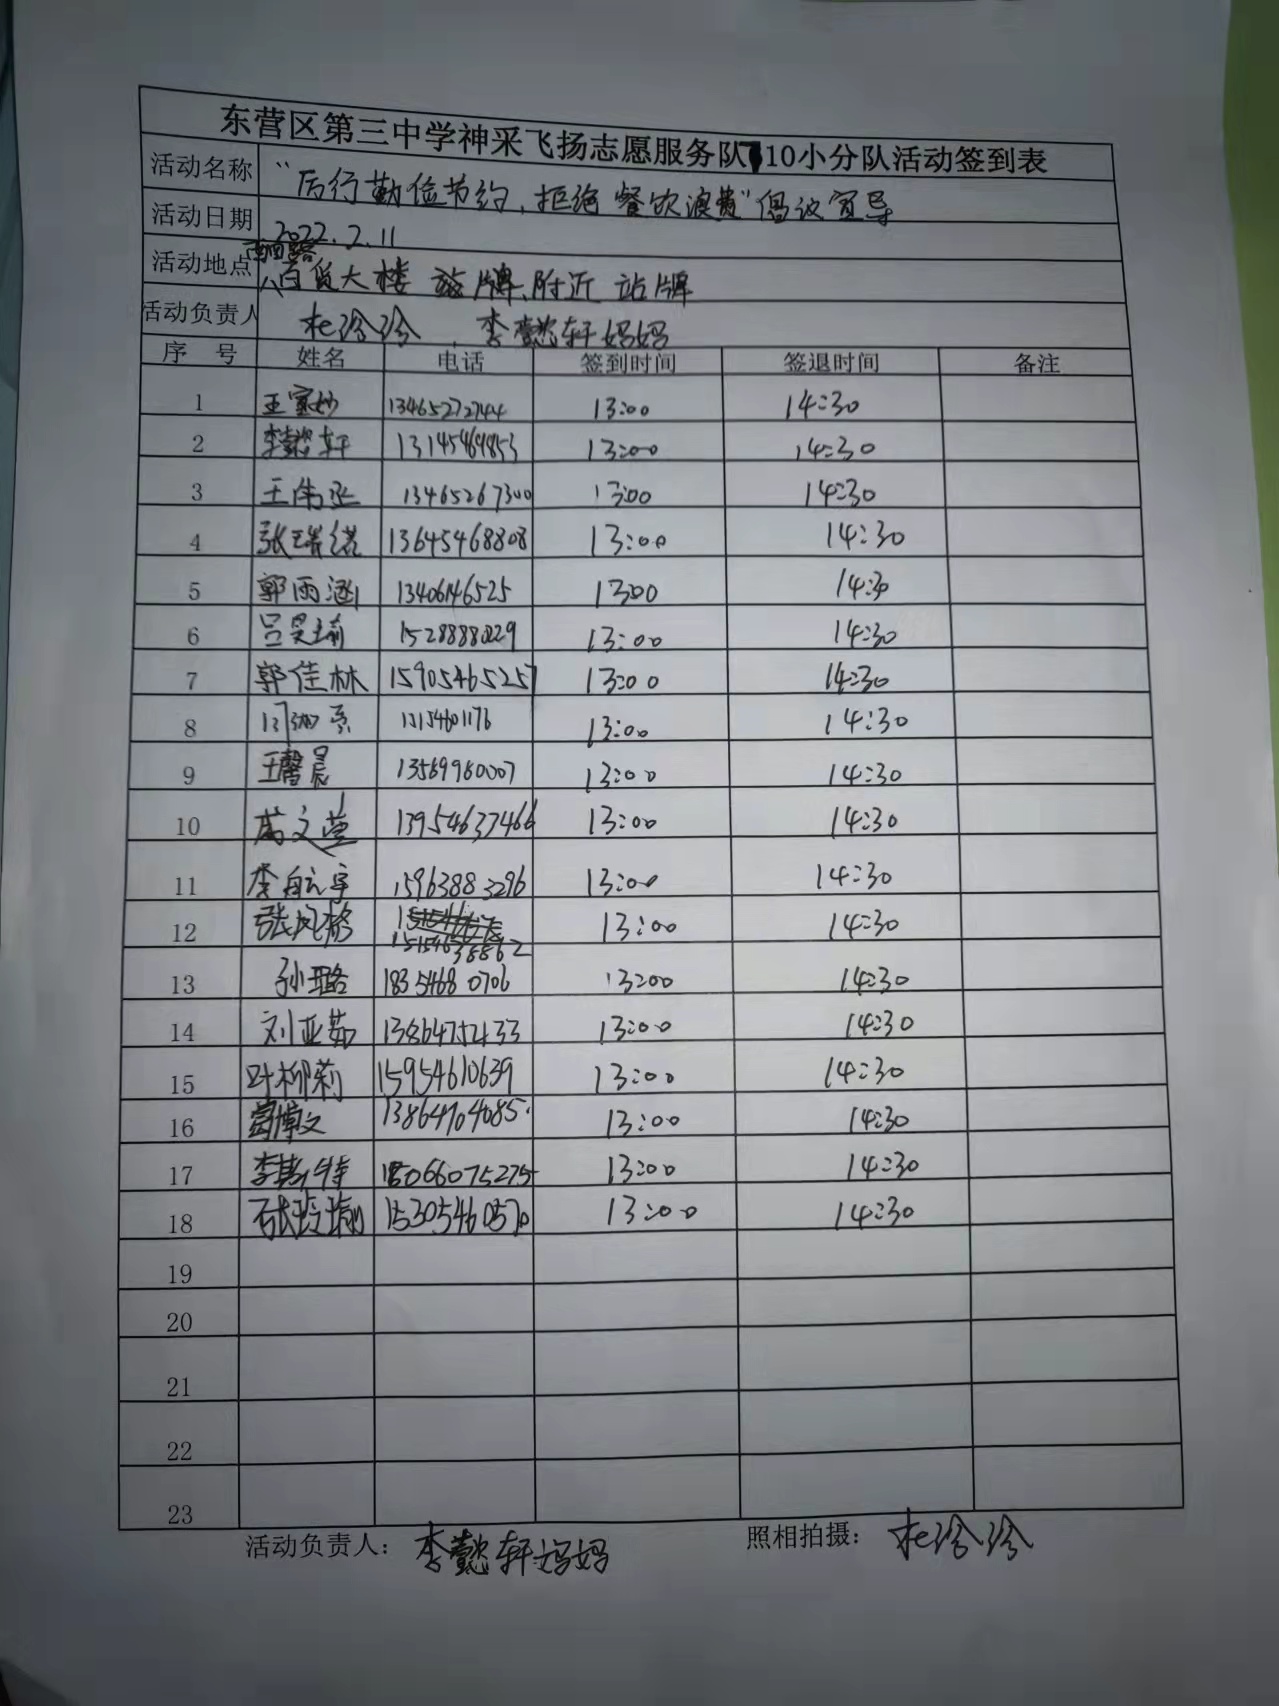 东营区第三中学神采飞扬志愿服务队10小分队活动签到表
活动名称 “厉行勤俭节约,拒绝餐饮浪费”倡议宣导
活动日期 2022.2.11
西四路
活动地点 百货大楼 站牌、附近 站牌
活动负责人 杜珍珍、李懿轩妈妈
序 号 姓名 电话 签到时间 签退时间 备注
1 王室妙 13465272744 13:00 14:30
2 李懿轩 13145469853 13:00 14:30
3 王伟丞 13465267300 13:00 14:30
4 张瑞诺 13645468808 13:00 14:30
5 郭雨涵 13406146525 1300 14:30
6 吕昊瑜 15288880229 13:00 14:30
7 郭佳林 15905465257 13:00 14:30
8 13:00 14:30
9 王馨晨 13589980007 13:00 14:30
10 文萱 13954637466 13:00 14:30
11 李航宇 15963883296 13:00 14:30
12 张凤格 15154638862 13:00 14:30
13 孙璐 18354680706 13:00 14:30
14 刘亚茹 13864752133 13:00 14:30
15 叶柳莉 15954610639 13:00 14:30
16 博文 13864704085 13:00 14:30
17 李 18066075275 13:00 14:30
18 15305460570 13:00 14:30
19
20
21
22
23
活动负责人: 李懿轩妈妈 照相拍摄: 杜珍珍